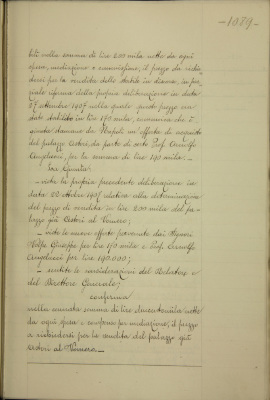 -1089-
bili nella somma di lire 200 mila nette da ogni
spesa, mediazione e senseria, il prezzo da richie-
dersi per la vendita dello stabile in discorso, in par-
ziale riforma della propria deliberazione in data
27 settembre 1907 nella quale questo prezzo era
stato stabilito in lire 170 mila, comunica che è
giunta stamane da Napoli un'offerta di acquisto
del palazzo Cestori, da parte di certo Prof. Arnolfo
Angelucci, per la somma di lire 190 mila.-
La Giunta
- vista la propria precedente deliberazione in
data 22 ottobre 1907 relativa alla determinazione
del prezzo di vendita in lire 200 mila del pa-
lazzo già Cestori al Vomero;
- viste le nuove offerte pervenute dai Signori
Giuseppe per lire 170 mila e Prof. Arnolfo
Angelucci per lire 190.000;
- sentite le considerazioni del Relatore e
del Direttore Generale;
conferma
nella cennata somma di lire duecentomila nette
da ogni spesa e compenso per mediazione, il prezzo
a richiedersi per la vendita del palazzo già
Cestori al Vomero.-